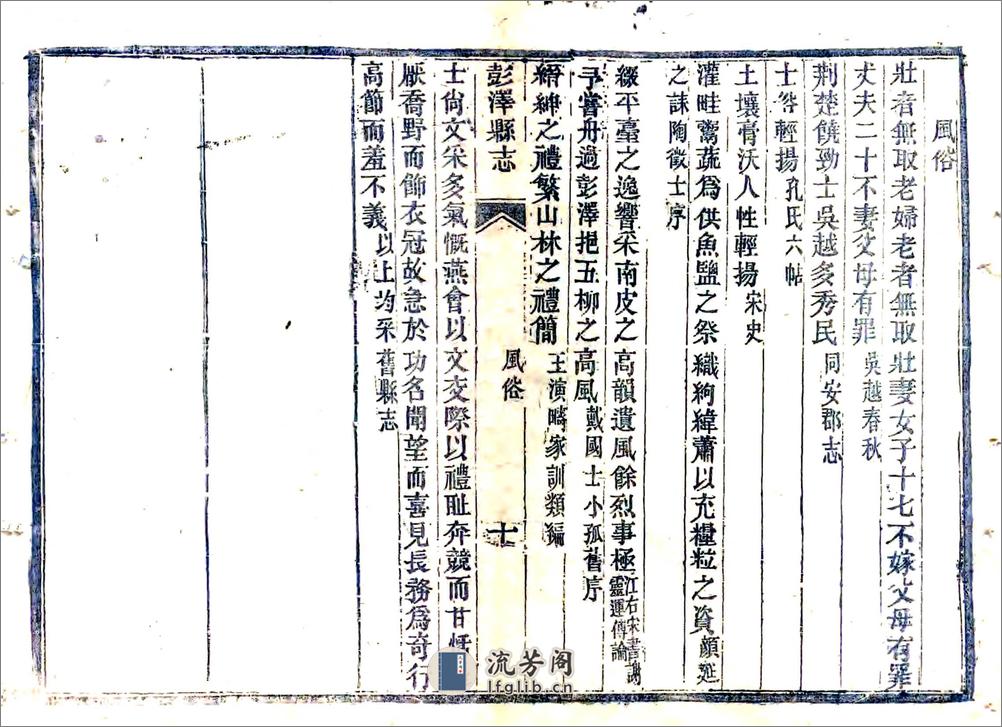 風俗
壯者無取老婦老者無取壯妻女子十七不嫁父母有罪
丈夫二十不妻父母有罪吳越春秋
荆楚饒勁士吳越多秀民同安郡志
士咨輕揚孔氏六帖
土壤膏沃人性輕揚宋史
灌畦鬻蔬爲供魚鹽之祭織絇緯蕭以充糧粒之資顔延
之誄陶徵士序
綴平臺之逸響采南皮之高韻遺風餘烈事極江右宋書謝靈運傳論
予嘗舟過彭澤挹五柳之高風戴國士小孤舊序
縉紳之禮繁山林之禮簡王演疇家訓類編
彭澤縣志 風俗 十
士尙文采多氣慨燕會以文交際以禮恥奔競而甘恬
厭喬野而飾衣冠故急於功名聞望而喜見長務爲奇行
高節而羞不義以上均采舊縣志
流芳阁
lfglib.cn